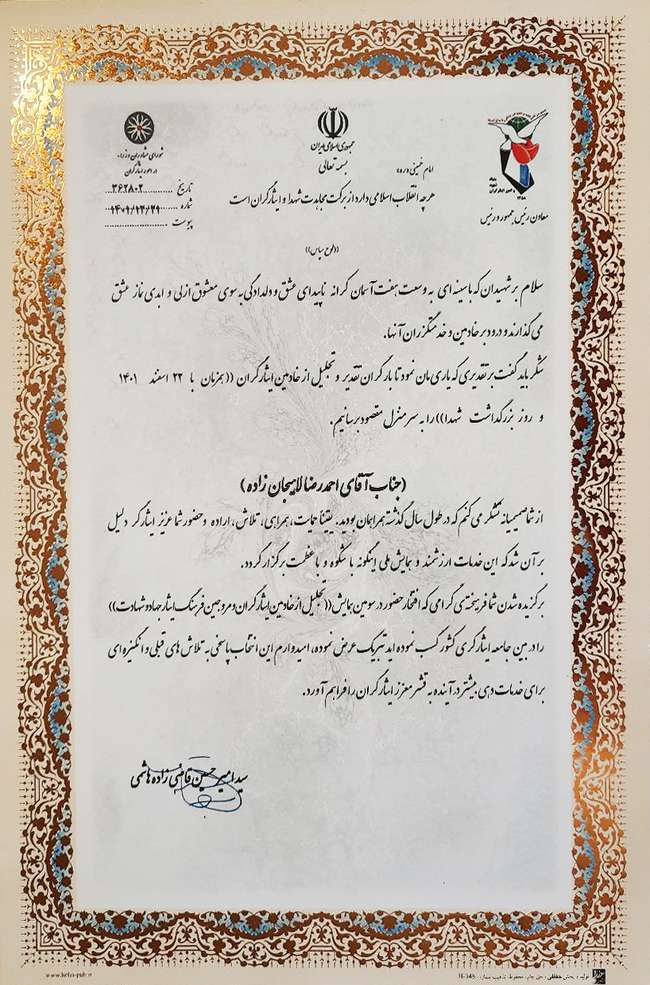 جمهوری اسلامی ایران
بسمه تعالی
شورای مشاوران وزراء
در امور ایثارگران
تاریخ ۳۶۲۸۰۲
شماره ۱۴۰۱/۱۲/۲۹
پیوست
امام خمینی (ره):
هر چه انقلاب اسلامی دارد از برکت مجاهدت شهدا و ایثارگران است
معاون رئیس جمهور و رئیس
((لوح سپاس))
سلام بر شهیدان که با سینه ای به وسعت هفت آسمان کرانه ناپیدای عشق و دلدادگی به سوی معشوق ازلی و ابدی نماز عشق
می گذارند و درود بر خادمین و خدمتگزران آنها.
شکر باید گفت بر تقدیری که یاری مان نمود تا بار گران تقدیر و تجلیل از خادمین ایثارگران ((همزمان با ۲۲ اسفند ۱۴۰۱
و روز بزرگداشت شهدا)) را به سر منزل مقصود برسانیم.
(جناب آقای احمدرضا لاهیجان زاده)
از شما صمیمانه تشکر می کنم که در طول سال گذشته همراهمان بودید. یقیناً حمایت، همراهی، تلاش، اراده و حضور شما عزیز ایثارگر دلیل
بر آن شد که این خدمات ارزشمند و همایش ملی اینگونه با شکوه و با عظمت برگزار گردد.
برگزیده شدن شما فرهیخته ی گرامی که افتخار حضور در سومین همایش ((تجلیل از خادمین ایثارگران و مروجین فرهنگ ایثار جهاد و شهادت))
را در بین جامعه ایثارگری کشور کسب نموده اید تبریک عرض نموده، امیدوارم این انتخاب پاسخی به تلاش های قبلی و انگیزه ای
برای خدمات دهی بیشتر در آینده به قشر معزز ایثارگران را فراهم آورد.
سید امیرحسین قاضی زاده هاشمی